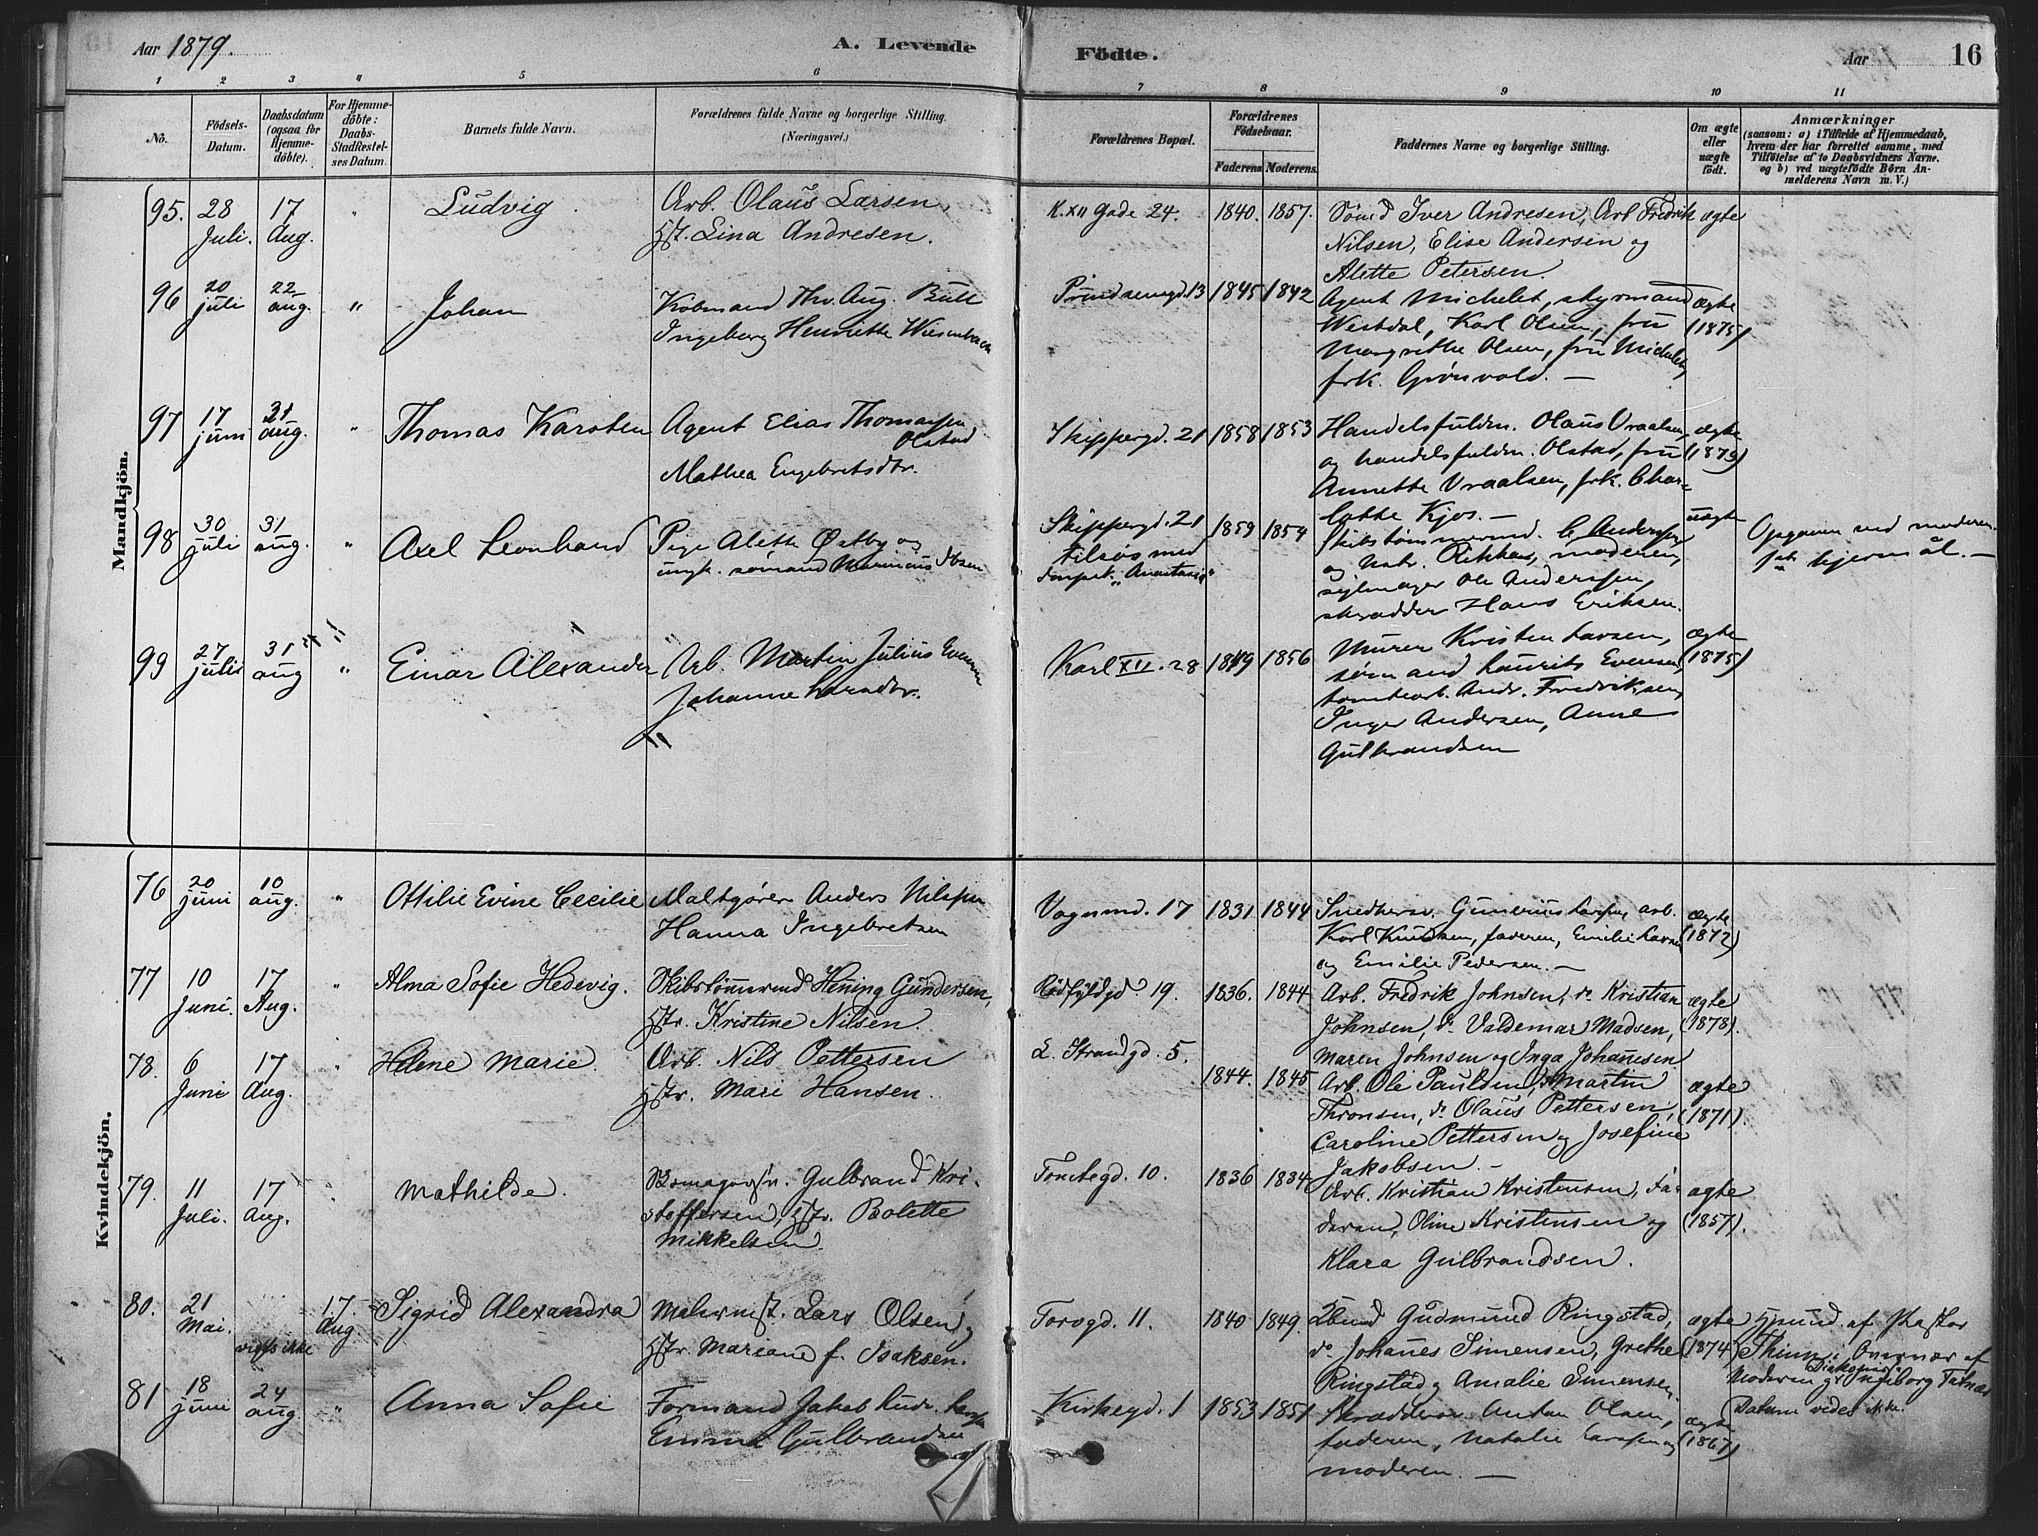 Aar 1879.
A. Levende Födte.
Aar
16
1 2 3 4 5 6 7 8 9 10 11
No.
Födsels-Datum.
Daabsdatum (ogsaa for Hjemmedöbte).
For Hjemmedöbte: Daabs-Stadfæstelses Datum.
Barnets fulde Navn.
Forældrenes fulde Navne og borgerlige Stilling.
(Næringsvei.)
Forældrenes Bopæl.
Forældrenes Födselsaar.
Faderens Moderens.
Faddernes Navne og borgerlige Stilling.
Om ægte eller uægte födt.
Anmærkninger
(saasom: a) i Tilfælde af Hjemmedaab, hvem der har forrettet samme, med Tilföielse af to Daabsvidners Navne. og b) ved uægtefödte Börn Anmelderens Navn m. V.)
Mandkjön.
95. 28 Juli. 17 Aug. " Ludvig Arb. Olaus Larsen, Hst. Lina Andresen. K. XII Gade 24. 1840. 1857. Sömd Iver Andresen, Arb Fredrik ægte
Nilsen, Elise Andersen og
Alette Petersen.
96 20 juli 22 aug. " Johan Kobmand Thv. Aug. Bull Ingeborg Henriette Prindsensgd. 13 1845 1842 Agent Michelet, styrmand ægte (1875)
Westdal, Karl Olsen, fru
Margrethe Olsen, fru Michelet,
frk. Grönvold. —
97 17 juni 31 aug. " Thomas Karsten Agent Elias Thomassen Olstad Mathea Engebretsdtr. Skippergd. 21 1858 1853 Handelsfuldm. Olaus Vraalsen, ægte (1879)
og handelsfuldm. Olstad, fru
Annette Vraalsen, frk. Char=
lotte Kjos. —
98 30 juli 31 aug. " Axel Leonhard Pige Alette Østby og ungk. sömand Marinius Skippergd. 21 1859 1854 Skibstömmermd. C. Anderssen uægte Opgaven ved moderen.
og moderen,
sejlmager Ole Anderssen,
skrædder Hans Eriksen.
99 27 juli 31 aug " Einar Alexander Arb. Martin Julius Evensen Johanne Larsdtr. Karl XII. 28 1849 1856 Murer Kristen Larsen, ægte (1875)
sömand Laurits Evensen
tomtearb. Andr. Fredriksen,
Inger Andersen, Anne
Gulbrandsen
Kvindekjön.
76 20 juni 10 aug. " Ottilie Evine Cecilie Maltgører Anders Nilssen Hanna Ingebretsen Vognmd. 17 1831 1844 Snedkersv. Gunerius Larssen, arb. ægte (1872)
Karl Knudsen, faderen, Emilie Larsen
og Emilie Pedersen. —
77 10 Juni. 17 Aug. " Alma Sofie Hedevig. Skibstömmermd Hening Gundersen, Hstr. Kristine Nilsen. Rödfyldgd. 19. 1836. 1844. Arb. Fredrik Johnsen, do Kristian ægte (1878).
Johnsen, do Valdemar Madsen,
Maren Johnsen og Inga Johannesen
78. 6 Juni 17 Aug. " Helene Marie. Arb. Nils Pettersen Hstr. Mari Hansen. L. Strandgd. 5. 1844. 1845 Arb. Ole Paulsen, do Martin ægte (1871).
Thronsen, do Olaus Pettersen,
Caroline Pettersen og Josefine
Jakobsen. —
79. 11 Juli. 17 Aug. " Mathilde. Gulbrand Kristoffersen, Hstr. Bolette Mikkelsen. Tomtegd. 10. 1836 1834 Arb. Kristian Kristensen, Fa- ægte (1857).
deren, Oline Kristensen og
Klara Gulbrandsen.
80. 21 Mai. vides ikke 17. Aug. Sigrid Alexandra Malermst. Lars Olsen Hstr. Mariane f. Isaksen. Torvgd. 11. 1840 1849. Gudmund Ringstad, ægte (1874) Hjmd. af Pastor
do Johannes Simensen, Grethe
Ringstad og Amalie Simensen.
Overvær af Moderen og Diakonisse Ingeborg
Datum vides ikke.
81 18 juni 24 aug. " Anna Sofie Formand Jakob Emma Gulbrandsen Kirkegd. 1 1853 1851 Skrædder Anton Olsen, ægte (1867)
faderen, Natalie Larssen og
moderen. —